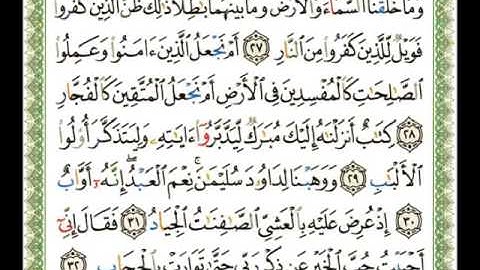 وَمَا خَلَقْنَا السَّمَاءَ وَالْأَرْضَ وَمَا بَيْنَهُمَا بَاطِلًا ذَٰلِكَ ظَنُّ الَّذِينَ كَفَرُوا
فَوَيْلٌ لِّلَّذِينَ كَفَرُوا مِنَ النَّارِ ٢٧ أَمْ نَجْعَلُ الَّذِينَ ءَامَنُوا وَعَمِلُوا
الصَّالِحَاتِ كَالْمُفْسِدِينَ فِي الْأَرْضِ أَمْ نَجْعَلُ الْمُتَّقِينَ كَالْفُجَّارِ
٢٨ كِتَابٌ أَنزَلْنَاهُ إِلَيْكَ مُبَارَكٌ لِّيَدَّبَّرُوا ءَايَاتِهِ وَلِيَتَذَكَّرَ أُولُوا
الْأَلْبَابِ ٢٩ وَوَهَبْنَا لِدَاوُودَ سُلَيْمَانَ ۚ نِعْمَ الْعَبْدُ ۖ إِنَّهُ أَوَّابٌ
٣٠ إِذْ عُرِضَ عَلَيْهِ بِالْعَشِيِّ الصَّافِنَاتُ الْجِيَادُ ٣١ فَقَالَ إِنِّي
أَحْبَبْتُ حُبَّ الْخَيْرِ عَن ذِكْرِ رَبِّي حَتَّىٰ تَوَارَتْ بِالْحِجَابِ ٣٢